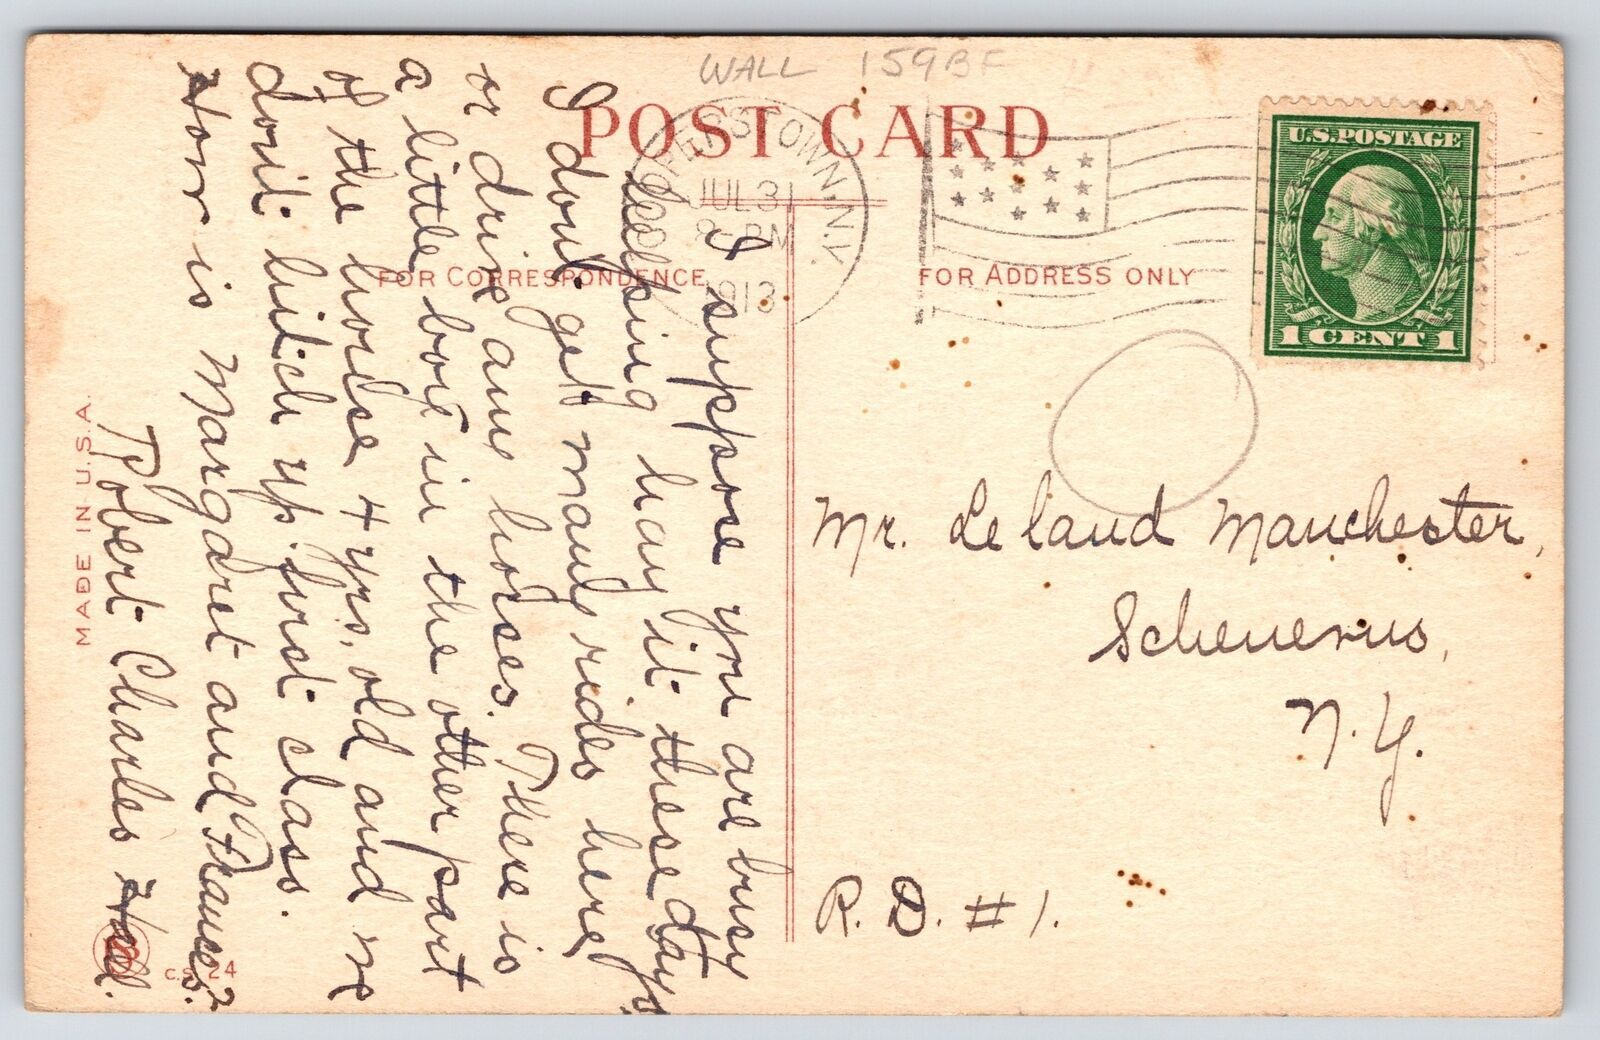 WALL 159BF
POST CARD
COOPERSTOWN, N.Y.
JUL 31
PM
1913
U.S. POSTAGE
1 CENT 1
FOR CORRESPONDENCE
FOR ADDRESS ONLY
I suppose you are busy
helping hay it these days
I don't get many rides here
or drive any horses. There is
a little boy in the other part
of the house 4 yrs. old and we
don't hitch up first class.
How is Margaret and Frances?
Robert Charles Hall.
Mr. Leland Manchester,
Schenevus,
N.Y.
R. D. #1.
MADE IN U.S.A.
C.S. 24